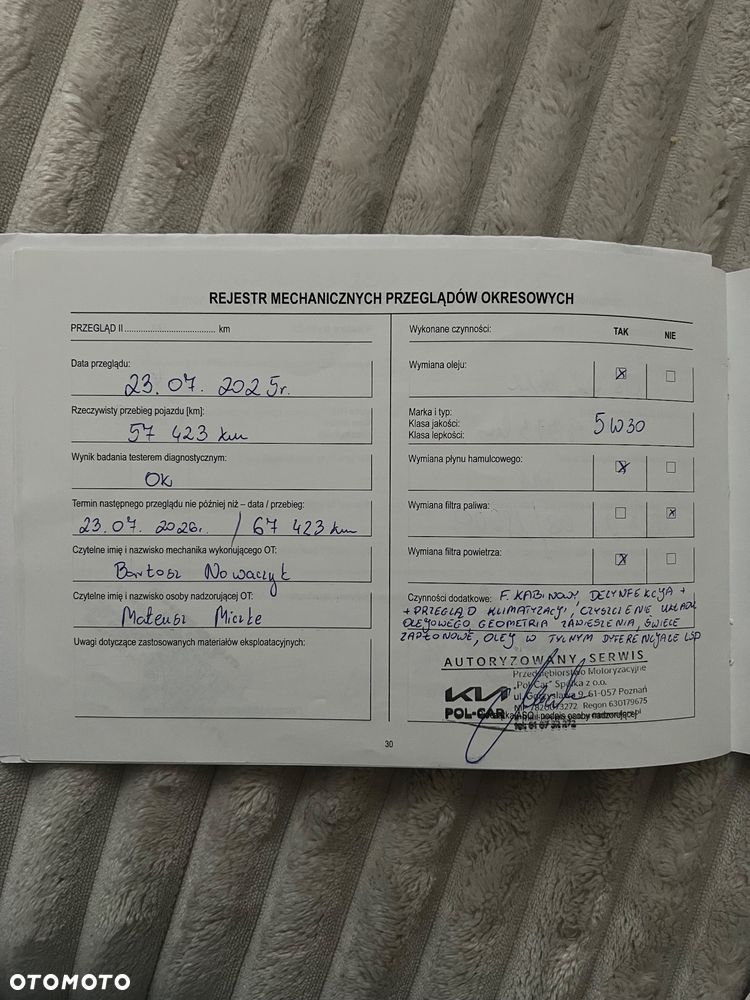 REJESTR MECHANICZNYCH PRZEGLĄDÓW OKRESOWYCH
PRZEGLĄD II.................................... km
Data przeglądu:
23.07.2025r.
Rzeczywisty przebieg pojazdu [km]:
57 423 km
Wynik badania testerem diagnostycznym:
OK
Termin następnego przeglądu nie później niż – data / przebieg:
23.07.2026r. / 67 423 km
Czytelne imię i nazwisko mechanika wykonującego OT:
Bartosz Nowaczyk
Czytelne imię i nazwisko osoby nadzorującej OT:
Mateusz
Uwagi dotyczące zastosowanych materiałów eksploatacyjnych:
Wykonane czynności: TAK NIE
Wymiana oleju:
Marka i typ:
Klasa jakości:
Klasa lepkości:
5W30
Wymiana płynu hamulcowego:
Wymiana filtra paliwa:
Wymiana filtra powietrza:
Czynności dodatkowe: F. KABINOWY, DEZYNFEKCJA +
+ PRZEGLĄD KLIMATYZACJI, CZYSZCZENIE UKŁADU
OLEJOWEGO, GEOMETRIA ZAWIESZENIA, ŚWIECE
ZAPŁONOWE, OLEJ W TYLNYM DYFERENCJALE LSD
AUTORYZOWANY SERWIS
Przedsiębiorstwo Motoryzacyjne
"Pol-Car" Spółka z o.o.
ul. 9, 61-057 Poznań
Regon 630179675
KIA
POL-CAR
podpis osoby nadzorującej
30
OTOMOTO